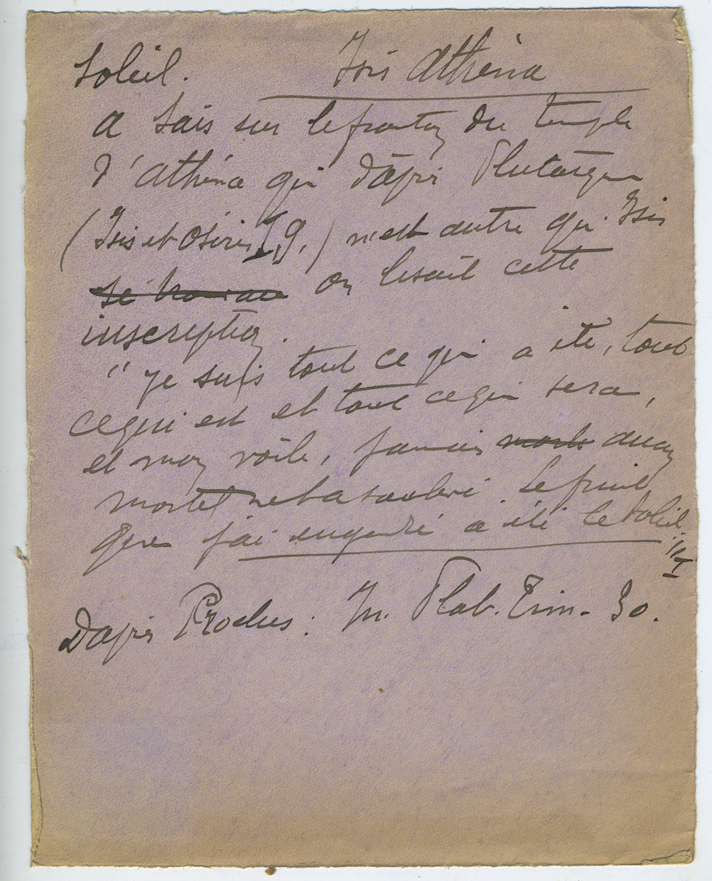 Soleil. Isis Athéna
a Sais sur le fronton du temple
d'athéna qui d'après Plutarque
(Isis et Osiris I, 9.) n'est autre qu'Isis
se trouve on lisait cette
inscription.
"je suis tout ce qui a été, tout
ce qui est et tout ce qui sera,
et mon voile, jamais aucun
mortel ne l'a soulevé. Le fruit
que j'ai engendré a été le Soleil."
D'après Proclus: In. Plat. Tim. 30.